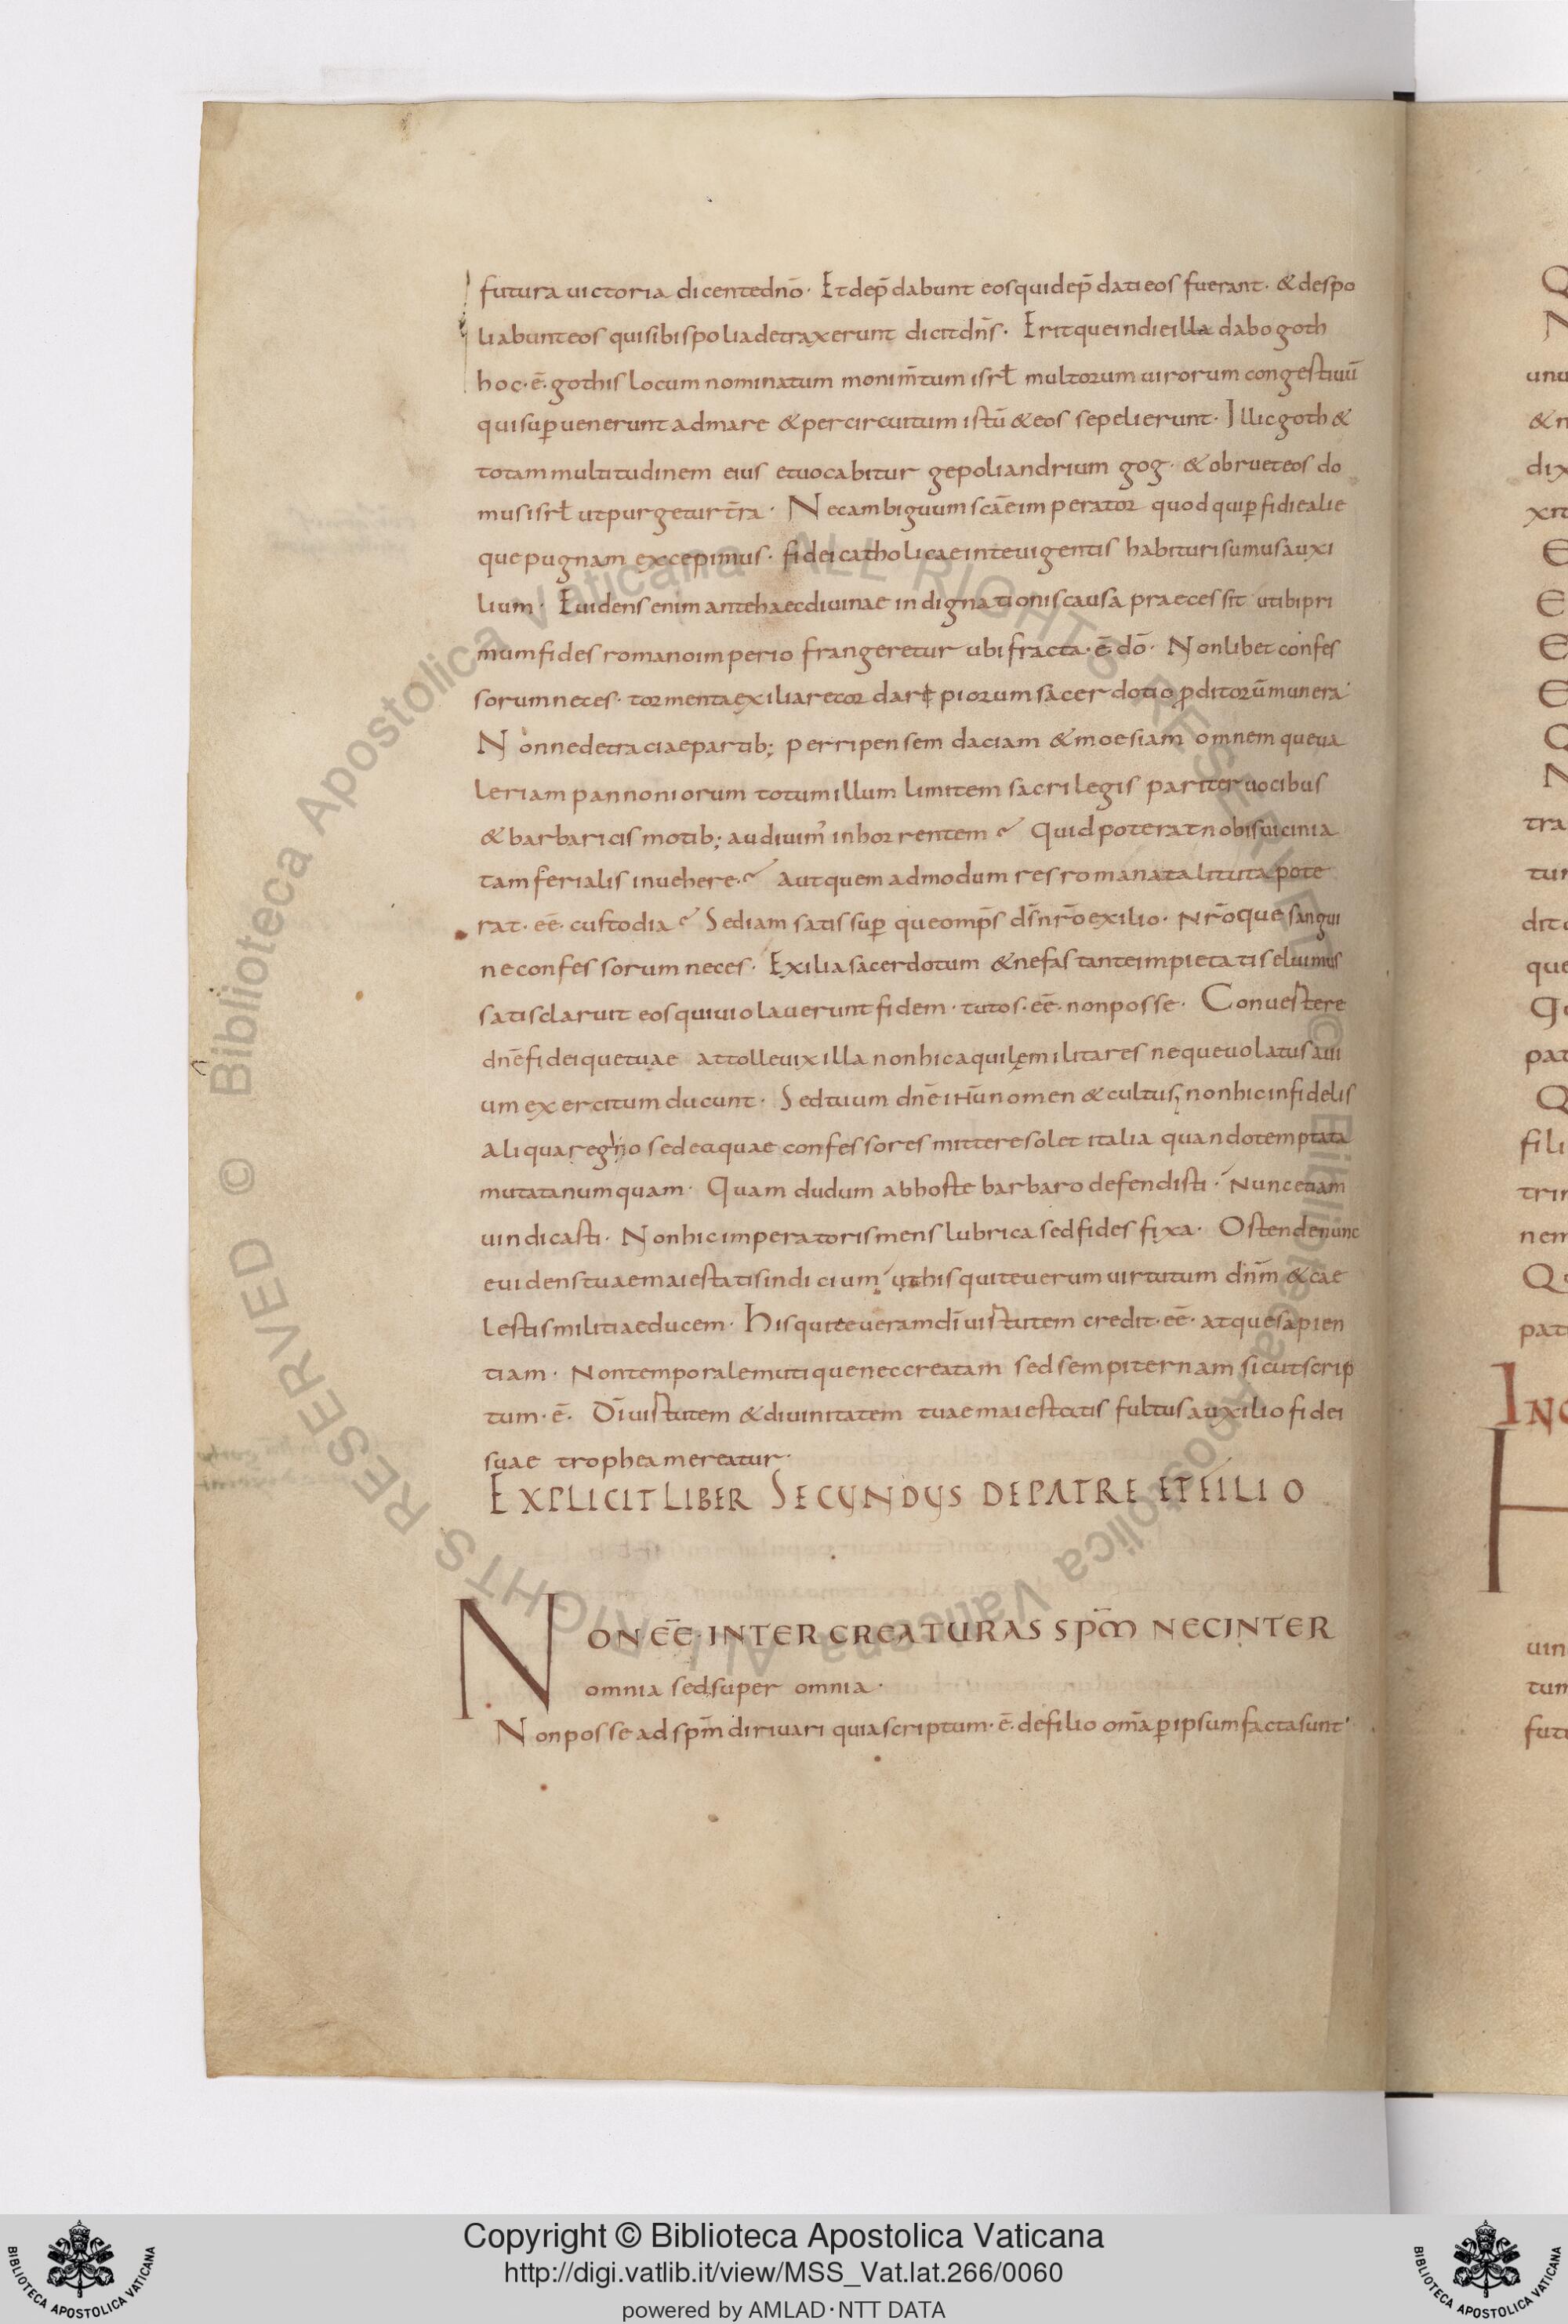 futura uictoria dicentedno̅· Et dep̅dabunt eos qui dep̅dati eos fuerant· & despo
liabunt eos qui sibi spolia detraxerunt dicit dn̅s· Erit que indieilla dabo goth
hoc·e̅·gothis locum nominatum monim̅tum isrł multorum uirorum congestiuu̅
qui sup̱uenerunt ad mare & per circuitum istu̅ & eos sepelierunt· Illic goth &
totam multitudinem eius etuocabitur gepoliandrium gog· & obruet eos do
mus isrł ut purgetur tr̅a· Nec ambiguum sca̅e imperator quod qui p̱fidie alie
que pugnam excepimus· fidei catholicae inte uigentis habituri sumus auxi
lium· Euidens enim antehaec diuinae indignationis causa praecessit ut ibi pri
mum fides romano imperio frangeretur ubi fracta·e̅ do̅· Non libet confes
sorum neces· tormenta exilia recordare piorum sacerdotio p̱ditoru̅ munera·
Nonne de traciae partib; per ripensem daciam & moesiam omnem que ua
leriam pannoniorum totum illum limitem sacrilegis pariter uocibus
& barbaricis motib; audiuim᾽ inhorrentem? Quid poterat nobis uicinia
tam ferialis inuehere? Aut quem admodum res romana tali tuta pote
rat·ee̅·custodia? Sed iam satis sup̱ que omp̅s ds̅ nr̅o exilio· Nr̅oque sangui
ne confessorum neces· Exilia sacerdotum & nefas tante impietatis eluimus
satis claruit eos qui uiolauerunt fidem· tutos·ee̅·non posse· Conuestere
dne̅ fidei que tuae attolle uixilla non hic aquilęmilitares neque uolatus aui
um exercitum ducunt· Sed tuum dne̅ ihu̅ nomen & cultus; non hic infidelis
aliqua regno sed ea quae confessores mittere solet italia quando temptata
mutata numquam· Quam dudum ab hoste barbaro defendisti· Nunc etiam
uindicasti· Non hic imperatoris mens lubrica sed fides fixa· Ostende nunc
euidens tuae maiestatis indicium ut his qui te uerum uirtutum dnm̅ & cae
lestis militiae ducem· His qui te ueram di̅ uirtutem credit·ee̅· atque sapien
tiam· Non temporalem uti que nec creatam sed sempiternam sicut scrip
tum·e̅· Di̅ uirtutem & diuinitatem tuae maiestatis fultus auxilio fidei
suae trophea mereatur·
EXPLICIT LIBER SECUNDUS DE PATRE ET FILIO
NON EE̅·INTER CREATURAS SPM̅ NEC INTER
omnia sed super omnia·
Non posse ad spm̅ dirivari quia scriptum·e̅·de filio om̅a p̱ ipsum facta sunt·
Copyright © Biblioteca Apostolica Vaticana
http://digi.vatlib.it/view/MSS_Vat.lat.266/0060
powered by AMLAD·NTT DATA